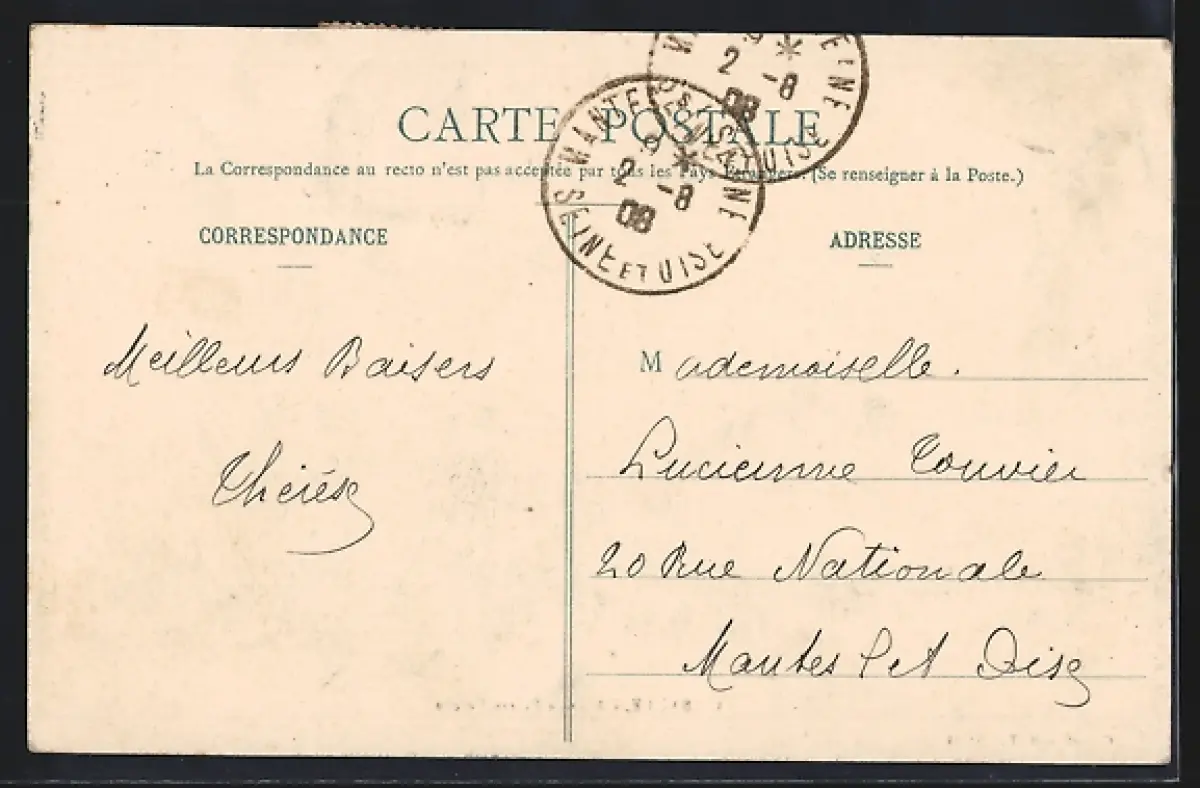 CARTE POSTALE
La Correspondance au recto n'est pas acceptée par tous les Pays Etrangers. (Se renseigner à la Poste.)
CORRESPONDANCE
Meilleurs Baisers
Thérèse
ADRESSE
Mademoiselle.
Lucienne Touvier
20 Rue Nationale
Mantes S et Oise
MANTES
9 *
2 -8
08
SEINE ET OISE
2 * -8
08